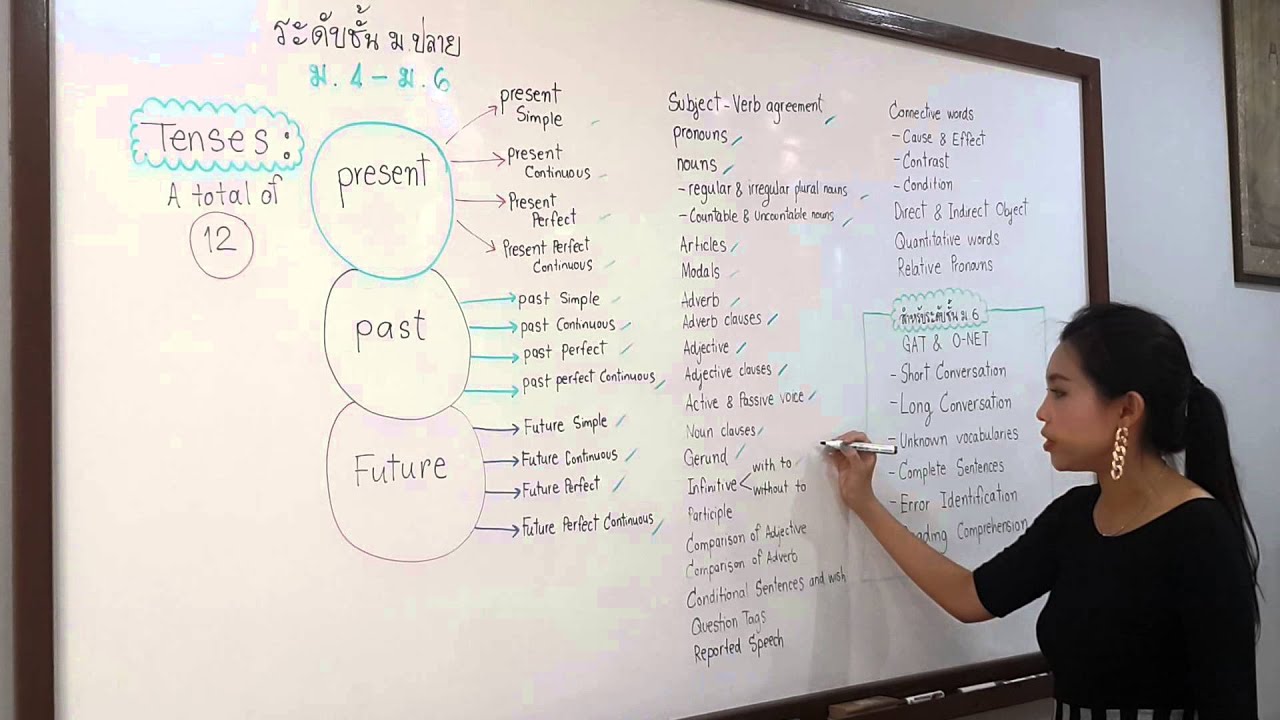 ระดับชั้น ม.ปลาย
ม.4 - ม.6
Tenses:
A total of
12
present
present
Simple
present
Continuous
Present
Perfect
Present Perfect
Continuous
past
past Simple
past Continuous
past perfect
past perfect Continuous
Future
Future Simple
Future Continuous
Future Perfect
Future Perfect Continuous
Subject - Verb agreement
pronouns
nouns
- regular & irregular plural nouns
- Countable & Uncountable nouns
Articles
Modals
Adverb
Adverb clauses
Adjective
Adjective clauses
Active & Passive voice
Noun clauses
Gerund
Infinitive
with to
without to
Participle
Comparison of Adjective
Comparison of Adverb
Conditional Sentences and wish
Question Tags
Reported Speech
Connective words
- Cause & Effect
- Contrast
- Condition
Direct & Indirect Object
Quantitative words
Relative Pronouns
สำหรับระดับชั้น ม.6
GAT & O-NET
- Short Conversation
- Long Conversation
- Unknown vocabularies
- Complete Sentences
- Error Identification
Comprehension